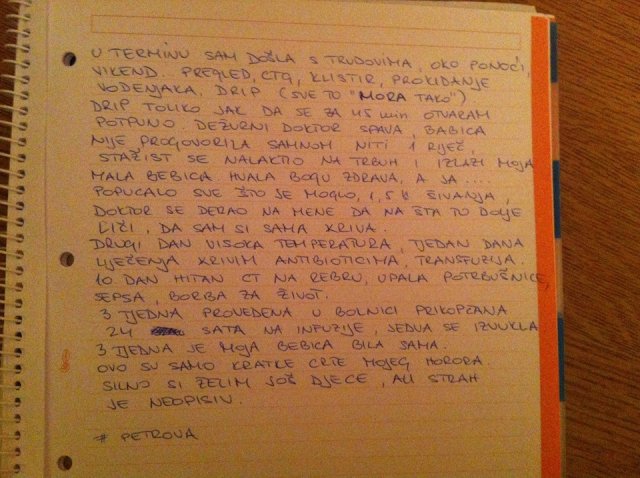 U TERMINU SAM DOŠLA S TRUDOVIMA, OKO PONOĆI,
VIKEND. PREGLED, CTG, KLISTIR, PROKIDANJE
VODENJAKA, DRIP (SVE TO "MORA TAKO")
DRIP TOLIKO JAK DA SE ZA 45 min OTVARAM
POTPUNO. DEŽURNI DOKTOR SPAVA, BABICA
NIJE PROGOVORILA SAMNOM NITI 1 RIJEČ,
STAŽIST SE NALAKTIO NA TRBUH I IZLAZI MOJA
MALA BEBICA HVALA BOGU ZDRAVA, A JA ....
POPUCALO SVE ŠTO JE MOGLO, 1,5 h ŠIVANJA,
DOKTOR SE DERAO NA MENE DA NA ŠTA TO DOLJE
LIČI, DA SAM SI SAMA KRIVA.
DRUGI DAN VISOKA TEMPERATURA, TJEDAN DANA
LIJEČENJA KRIVIM ANTIBIOTICIMA, TRANSFUZIJA.
10 DAN HITAN CT NA REBRU, UPALA POTRBUŠNICE,
SEPSA, BORBA ZA ŽIVOT.
3 TJEDNA PROVEDENA U BOLNICI PRIKOPČANA
24 SATA NA INFUZIJE, JEDVA SE IZVUKLA
3 TJEDNA JE MOJA BEBICA BILA SAMA.
OVO SU SAMO KRATKE CRTE MOJEG HORORA.
SILNO SI ŽELIM JOŠ DJECE, ALI STRAH
JE NEOPISIV.
# PETROVA